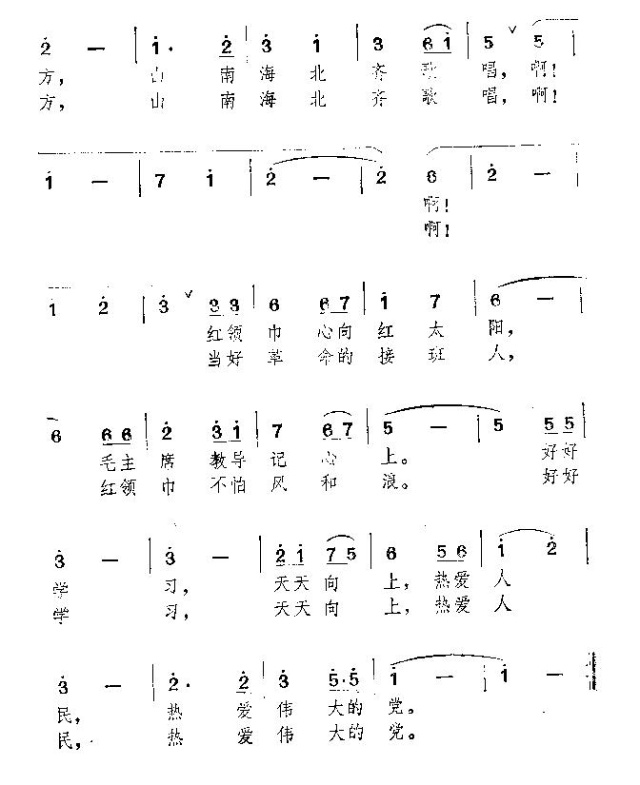 2̇ — | 1̇· 2̇ | 3̇ 1̇ | 3 6 1̇ | 5 ∨ 5 |
方， 山 南 海 北 齐 歌 唱，啊！
方， 山 南 海 北 齐 歌 唱，啊！
1̇ — | 7 1̇ | 2̇ — | 2̇ 6 | 2̇ — |
啊！
啊！
1̇ 2̇ | 3̇ ∨ 3̇ 3̇ | 6 6 7 | 1̇ 7 | 6 — |
红领 巾 心向 红 太 阳，
当好 革 命的 接 班 人，
6 6 6 | 2̇ 3̇ 1̇ | 7 6 7 | 5 — | 5 5 5 |
毛主 席 教导 记 心 上。 好好
红领 巾 不怕 风 和 浪。 好好
3̇ — | 3̇ — | 2̇ 1̇ 7 5 | 6 5 6 | 1̇ 2̇ |
学 习， 天天 向 上，热爱 人
学 习， 天天 向 上，热爱 人
3̇ — | 2̇· 2̇ | 3̇ 5̇·5̇ | 1̇ — | 1̇ — ‖
民， 热 爱 伟 大的 党。
民， 热 爱 伟 大的 党。